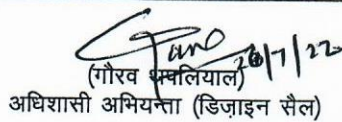 26/7/22
(गौरव थपलियाल)
अधिशासी अभियन्ता (डिज़ाइन सैल)